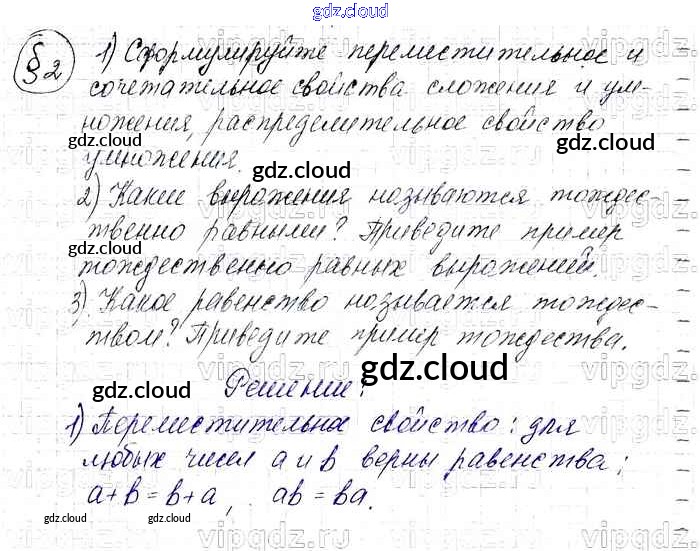 gdz.cloud
§2 1) Сформулируйте переместительное и
сочетательное свойства сложения и ум-
ножения, распределительное свойство
умножения.
gdz.cloud
gdz.cloud
2) Какие выражения называются тождес-
твенно равными? Приведите пример
тождественно равных выражений.
gdz.cloud
gdz.cloud
3) Какое равенство называется тождес-
твом? Приведите пример тождества.
gdz.cloud
gdz.cloud
Решение:
gdz.cloud
gdz.cloud
1) Переместительное свойство: для
любых чисел a и b верны равенства:
a+b=b+a, ab=ba.
gdz.cloud
gdz.cloud
gdz.cloud